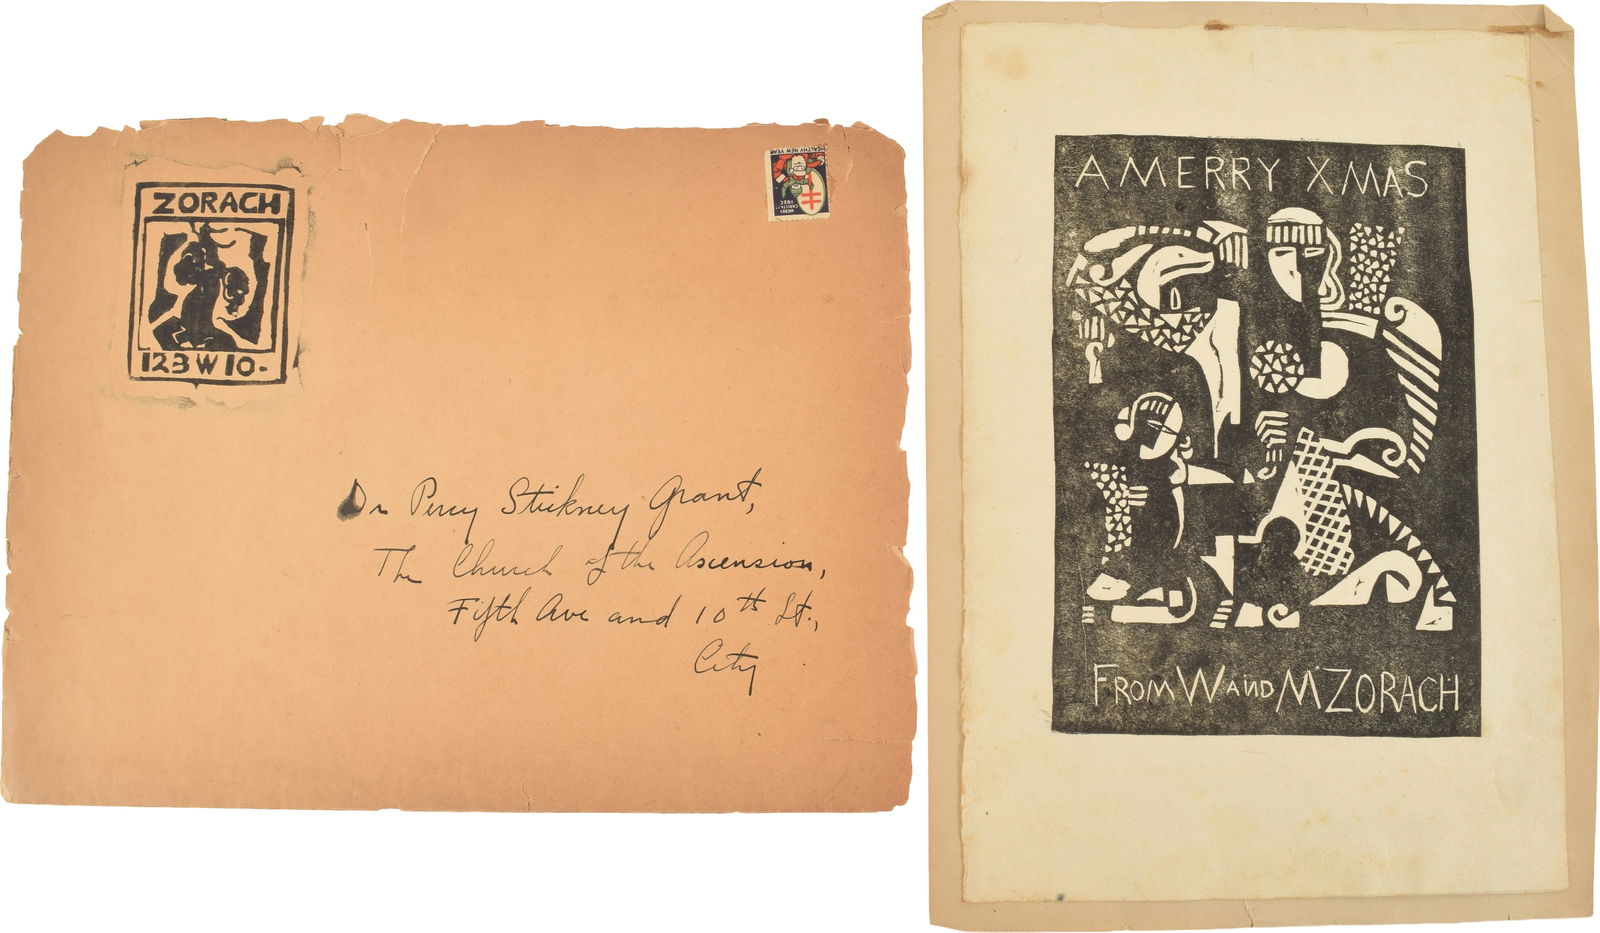 ZORACH
123 W 10-
HEALTHY NEW YEAR
MERRY
CHRISTMAS
1920
Dr Percy Stickney Grant,
The Church of the Ascension,
Fifth Ave and 10th St.,
City
A MERRY XMAS
FROM W AND M ZORACH